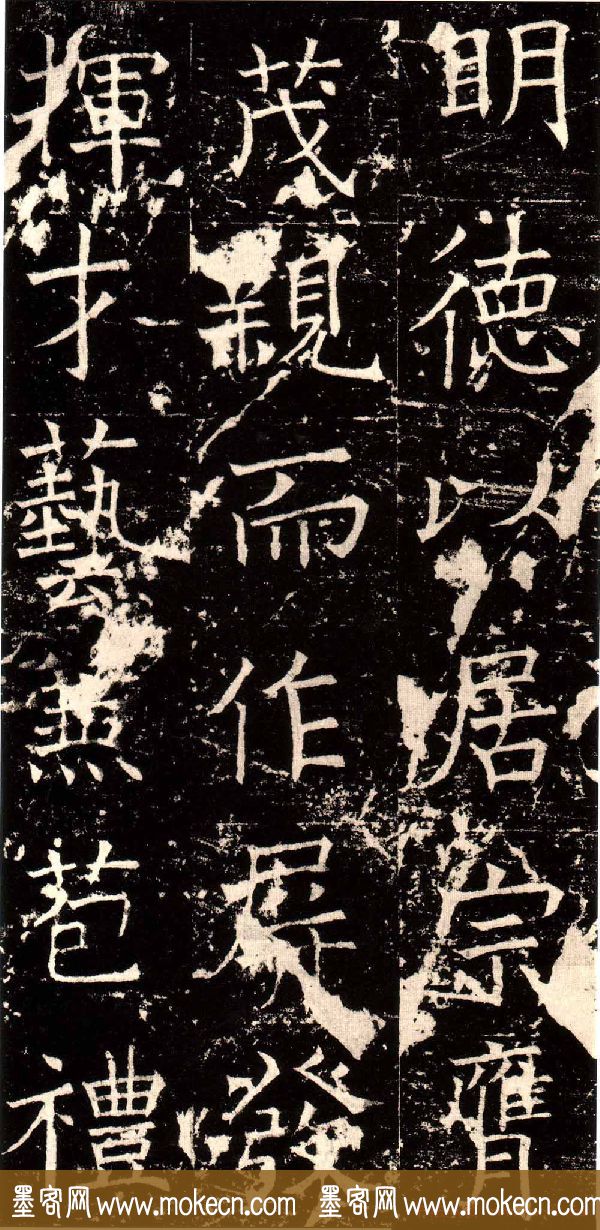 眀徳以居宗膺
茂親而作屏發
揮才藝兼苞禮
墨客网 www.mokecn.com 墨客网 www.mokecn.com